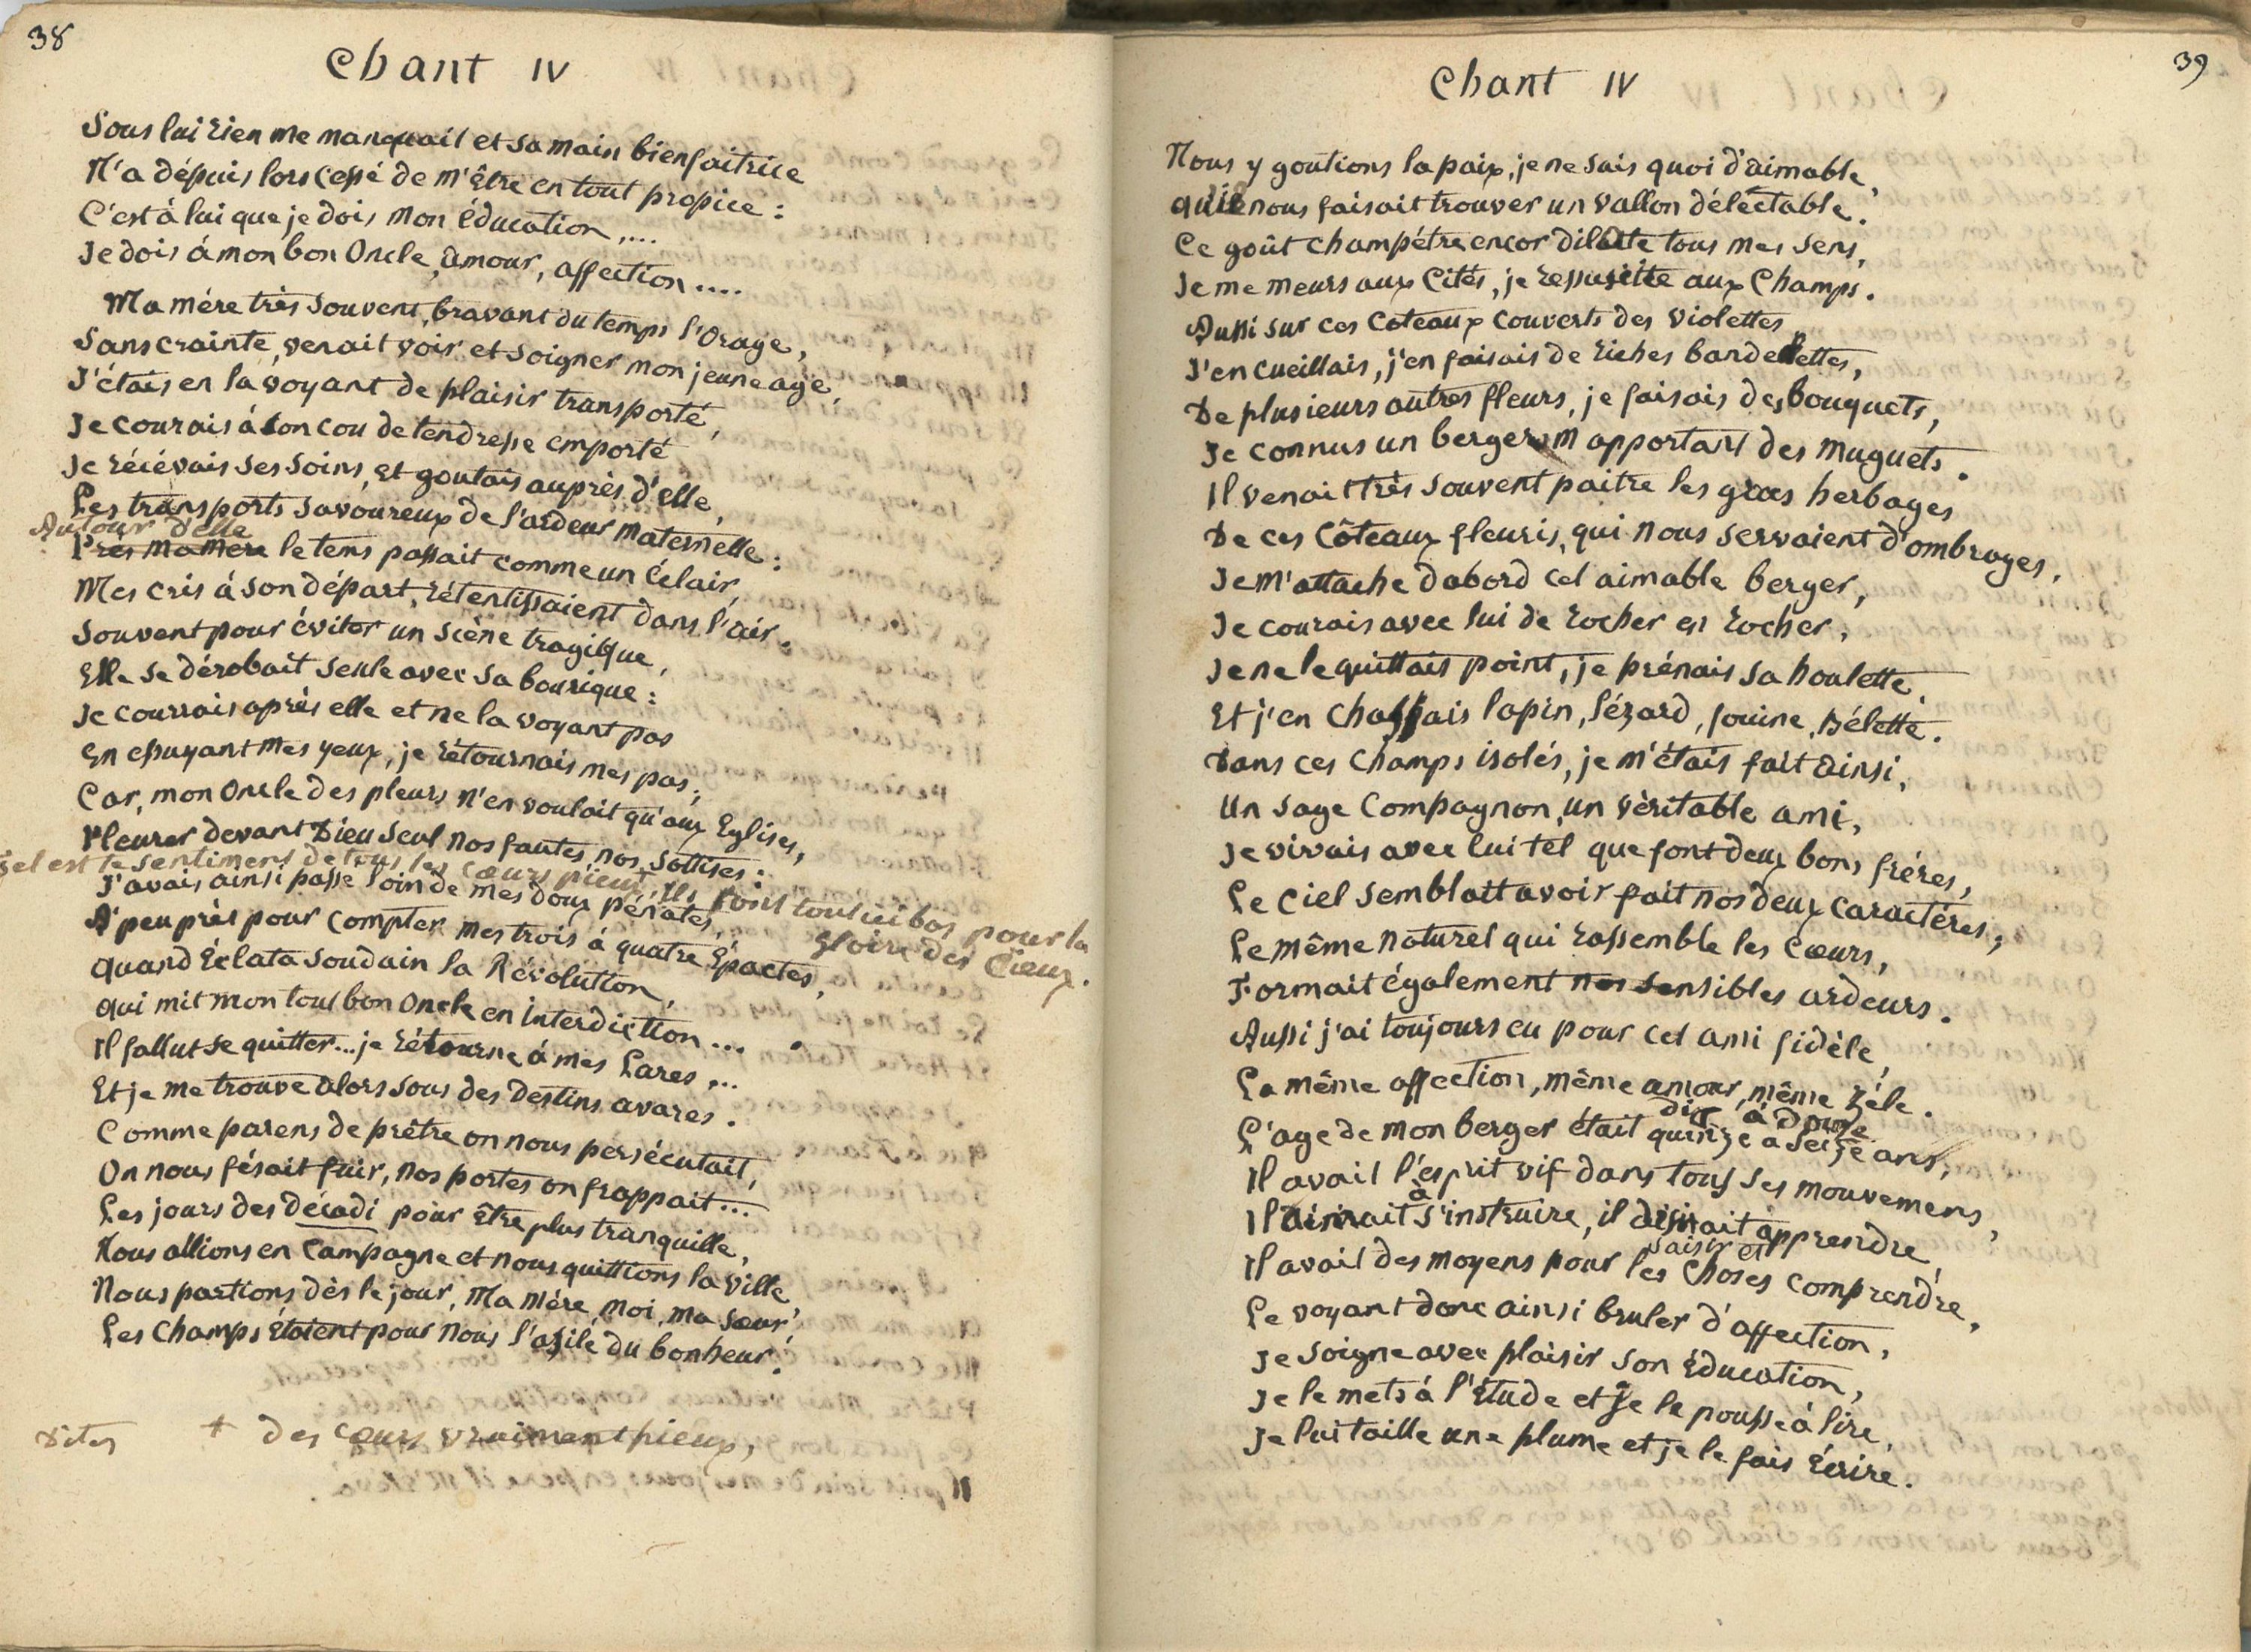 38
Chant IV
Sous lui rien me manquait et sa main bienfaitrice
N'a dépuis lors cessé de m'Être en tout propice :
C'est à lui que je dois mon Éducation,...
Je dois á mon bon Oncle, amour, affection....
Ma mére très souvent, bravant du temps l'Orage,
Sans crainte, venait voir et soigner mon jeune age,
J'étais en la voyant de plaisir transporté,
Je courais á son cou de tendresse emporté
Je récévais ses soins, et goutais auprès d'elle,
Les transports savoureux de l'ardeur maternelle :
Autour d'elle
Près ma mère le tems passait comme un Éclair,
Mes cris à son départ, rétentissaient dans l'air.
Souvent pour éviter un scène tragique,
Elle se dérobait seule avec sa bourique :
Je courrais aprés elle et ne la voyant pas
En essuyant mes yeux, je rétournais mes pas ;
Car, mon Oncle des pleurs n'en voulait qu'aux Eglises,
Pleurer devant Dieu seul nos fautes, nos sottises :
Tel est le sentiment de tous les cœurs pieux, + Ils font tout ici bas pour la
Gloire des Cieux.
J'avais ainsi passé loin de mes doux pénates,
A' peu près pour compter mes trois à quatre Épactes,
Quand Éclata soudain la Révolution,
Qui mit mon tout bon Oncle en interdiction...
Il fallut se quitter... je rétourne á mes Lares,...
Et je me trouve alors sous des Destins avares.
Comme parens de prêtre on nous persécutait,
On nous fésait fuir, nos portes on frappait...
Les jours des décadi pour Être plus tranquille,
Nous allions en Campagne et nous quittions la Ville,
Nous partions dès le jour, Ma Mére, moi, ma sœur,
Les Champs Étaient pour nous l'asile du bonheur.
Dites + des cœurs vraiment pieux,
39
Chant IV
Nous y goutions la paix, je ne sais quoi d'aimable,
Qui nous faisait trouver un vallon délectable.
Ce goût champétre encor dilate tous mes sens,
Je me meurs aux Cités, je ressuscite aux Champs.
Aussi sur ces Coteaux couverts des violettes,
J'en cueillais, j'en faisais de riches bandelettes,
De plusieurs autres fleurs, je faisais des bouquets,
Je connus un berger m'apportant des muguets.
Il venait très souvent paitre les gras herbages
De ces Côteaux fleuris, qui nous servaient d'ombrages,
Je m'attache dabord cet aimable berger,
Je courais avec lui de rocher en rocher,
Je ne le quittais point, je prénais sa houlette,
Et j'en chassais lapin, lézard, fouine, Bélette.
Dans ces Champs isolés, je m'étais fait ainsi,
Un sage Compagnon, un véritable ami,
Je vivais avec lui tel que font deux bons fréres,
Le Ciel semblait avoir fait nos deux caractéres,
Le même naturel qui rassemble les Cœurs,
Formait également nos sensibles ardeurs.
Aussi j'ai toujours eu pour cet ami fidèle,
La même affection, même amour, même zéle.
dix à douze
L'age de mon berger était quinze a seize ans,
Il avait l'esprit vif dans tous ses mouvemens,
à
Il aimait s'instruire, il désirait apprendre,
saisir et
Il avait des moyens pour les choses comprendre,
Le voyant donc ainsi bruler d'affection,
Je soigne avec plaisir son Éducation,
Je le mets á l'Étude et je le pousse à lire,
Je lui taille une plume et je le fais Écrire.